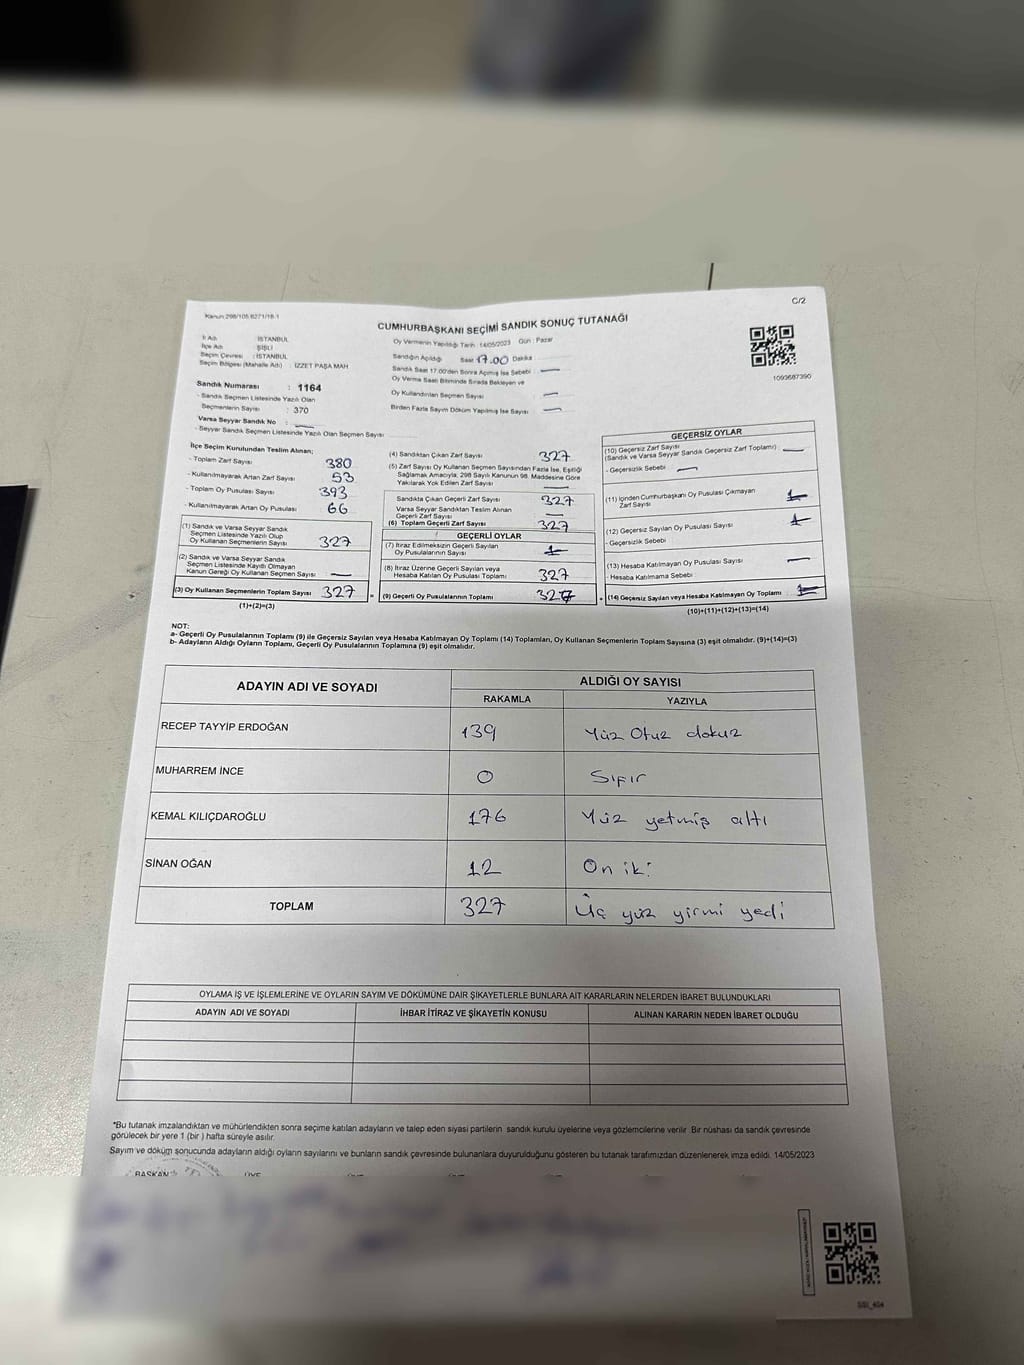 C/2
Kanun 298/105 6271/18-1
CUMHURBAŞKANI SEÇİMİ SANDIK SONUÇ TUTANAĞI
İl Adı : İSTANBUL
İlçe Adı : ŞİŞLİ
Seçim Çevresi : İSTANBUL
Seçim Bölgesi (Mahalle Adı) : İZZET PAŞA MAH
Sandık Numarası : 1164
- Sandık Seçmen Listesinde Yazılı Olan
Seçmenlerin Sayısı : 370
Varsa Seyyar Sandık No :
- Seyyar Sandık Seçmen Listesinde Yazılı Olan Seçmen Sayısı
Oy Vermenin Yapıldığı Tarih : 14/05/2023 Gün : Pazar
Sandığın Açıldığı Saat 17.00 Dakika
Sandık Saat 17.00'den Sonra Açılmış İse Sebebi
Oy Verme Saati Bitiminde Sırada Bekleyen ve
Oy Kullandırılan Seçmen Sayısı
Birden Fazla Sayım Döküm Yapılmış İse Sayısı
1093687390
İlçe Seçim Kurulundan Teslim Alınan;
- Toplam Zarf Sayısı 380
- Kullanılmayarak Artan Zarf Sayısı 53
- Toplam Oy Pusulası Sayısı 393
- Kullanılmayarak Artan Oy Pusulası 66
(1) Sandık ve Varsa Seyyar Sandık
Seçmen Listesinde Yazılı Olup
Oy Kullanan Seçmenlerin Sayısı 327
(2) Sandık ve Varsa Seyyar Sandık
Seçmen Listesinde Kayıtlı Olmayan
Kanun Gereği Oy Kullanan Seçmen Sayısı
(3) Oy Kullanan Seçmenlerin Toplam Sayısı 327 =
(1)+(2)=(3)
(4) Sandıktan Çıkan Zarf Sayısı 327
(5) Zarf Sayısı Oy Kullanan Seçmen Sayısından Fazla İse, Eşitliği
Sağlamak Amacıyla, 298 Sayılı Kanunun 98. Maddesine Göre
Yakılarak Yok Edilen Zarf Sayısı
Sandıkta Çıkan Geçerli Zarf Sayısı 327
Varsa Seyyar Sandıktan Teslim Alınan
Geçerli Zarf Sayısı
(6) Toplam Geçerli Zarf Sayısı 327
GEÇERLİ OYLAR
(7) İtiraz Edilmeksizin Geçerli Sayılan
Oy Pusulalarının Sayısı
(8) İtiraz Üzerine Geçerli Sayılan veya
Hesaba Katılan Oy Pusulası Toplamı 327
(9) Geçerli Oy Pusulalarının Toplamı 327 +
GEÇERSİZ OYLAR
(10) Geçersiz Zarf Sayısı
(Sandık ve Varsa Seyyar Sandık Geçersiz Zarf Toplamı)
- Geçersizlik Sebebi
(11) İçinden Cumhurbaşkanı Oy Pusulası Çıkmayan
Zarf Sayısı
(12) Geçersiz Sayılan Oy Pusulası Sayısı
- Geçersizlik Sebebi
(13) Hesaba Katılmayan Oy Pusulası Sayısı
- Hesaba Katılmama Sebebi
(14) Geçersiz Sayılan veya Hesaba Katılmayan Oy Toplamı
(10)+(11)+(12)+(13)=(14)
NOT:
a- Geçerli Oy Pusulalarının Toplamı (9) ile Geçersiz Sayılan veya Hesaba Katılmayan Oy Toplamı (14) Toplamları, Oy Kullanan Seçmenlerin Toplam Sayısına (3) eşit olmalıdır. (9)+(14)=(3)
b- Adayların Aldığı Oyların Toplamı, Geçerli Oy Pusulalarının Toplamına (9) eşit olmalıdır.
ADAYIN ADI VE SOYADI
ALDIĞI OY SAYISI
RAKAMLA YAZIYLA
RECEP TAYYİP ERDOĞAN 139 Yüz Otuz dokuz
MUHARREM İNCE 0 Sıfır
KEMAL KILIÇDAROĞLU 176 Yüz yetmiş altı
SİNAN OĞAN 12 On iki
TOPLAM 327 Üç yüz yirmi yedi
OYLAMA İŞ VE İŞLEMLERİNE VE OYLARIN SAYIM VE DÖKÜMÜNE DAİR ŞİKAYETLERLE BUNLARA AİT KARARLARIN NELERDEN İBARET BULUNDUKLARI
ADAYIN ADI VE SOYADI İHBAR İTİRAZ VE ŞİKAYETİN KONUSU ALINAN KARARIN NEDEN İBARET OLDUĞU
*Bu tutanak imzalandıktan ve mühürlendikten sonra seçime katılan adayların ve talep eden siyasi partilerin sandık kurulu üyelerine veya gözlemcilerine verilir. Bir nüshası da sandık çevresinde
görülecek bir yere 1 (bir ) hafta süreyle asılır.
Sayım ve döküm sonucunda adayların aldığı oyların sayılarını ve bunların sandık çevresinde bulunanlara duyurulduğunu gösteren bu tutanak tarafımızdan düzenlenerek imza edildi. 14/05/2023
BAŞKAN ÜYE